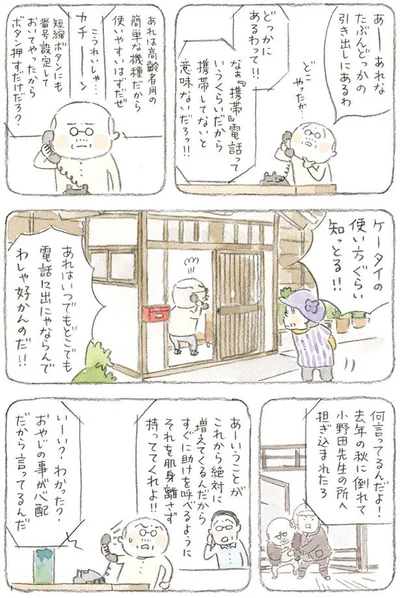 あーあれな
たぶんどっかの
引き出しにあるわ
どこ
やったか
どっかに
あるわって!!
なぁ『携帯』電話って
いうくらいだから
携帯してないと
意味ないだろッ!!
あれは高齢者用の
簡単な機種だから
使いやすいはずだぜ
こうれいしゃ…
カチーン
短縮ボタンにも
番号設定して
おいてやったから
ボタン押すだけだろ?
ケータイの
使い方ぐらい
知っとる!!
あれはいつでもどこでも
電話に出にゃならんで
わしゃ好かんのだ!!
何言ってるんだよ!
去年の秋に倒れて
小野田先生の所へ
担ぎ込まれたろ
あーいうことが
これから絶対に
増えてくるんだから
すぐに助けを呼べるように
それを肌身離さず
持っててくれよ!!
いーい?わかった?
おやじの事が心配
だから言ってるんだ